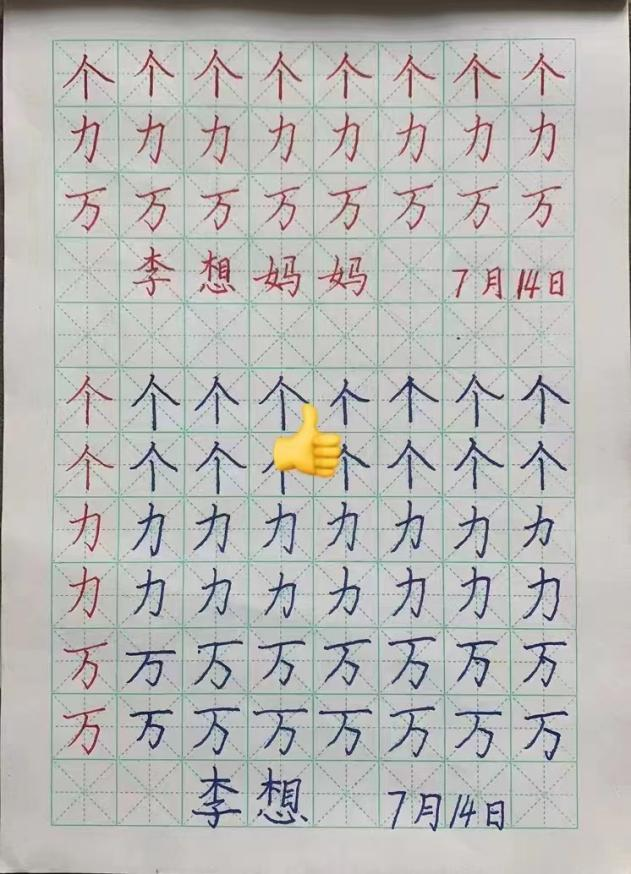 个个个个个个个个
力力力力力力力力
万万万万万万万万
李想妈妈 7月14日
个个个个个个个个
个个个个个个个个
力力力力力力力力
力力力力力力力力
万万万万万万万万
万万万万万万万万
李想 7月14日